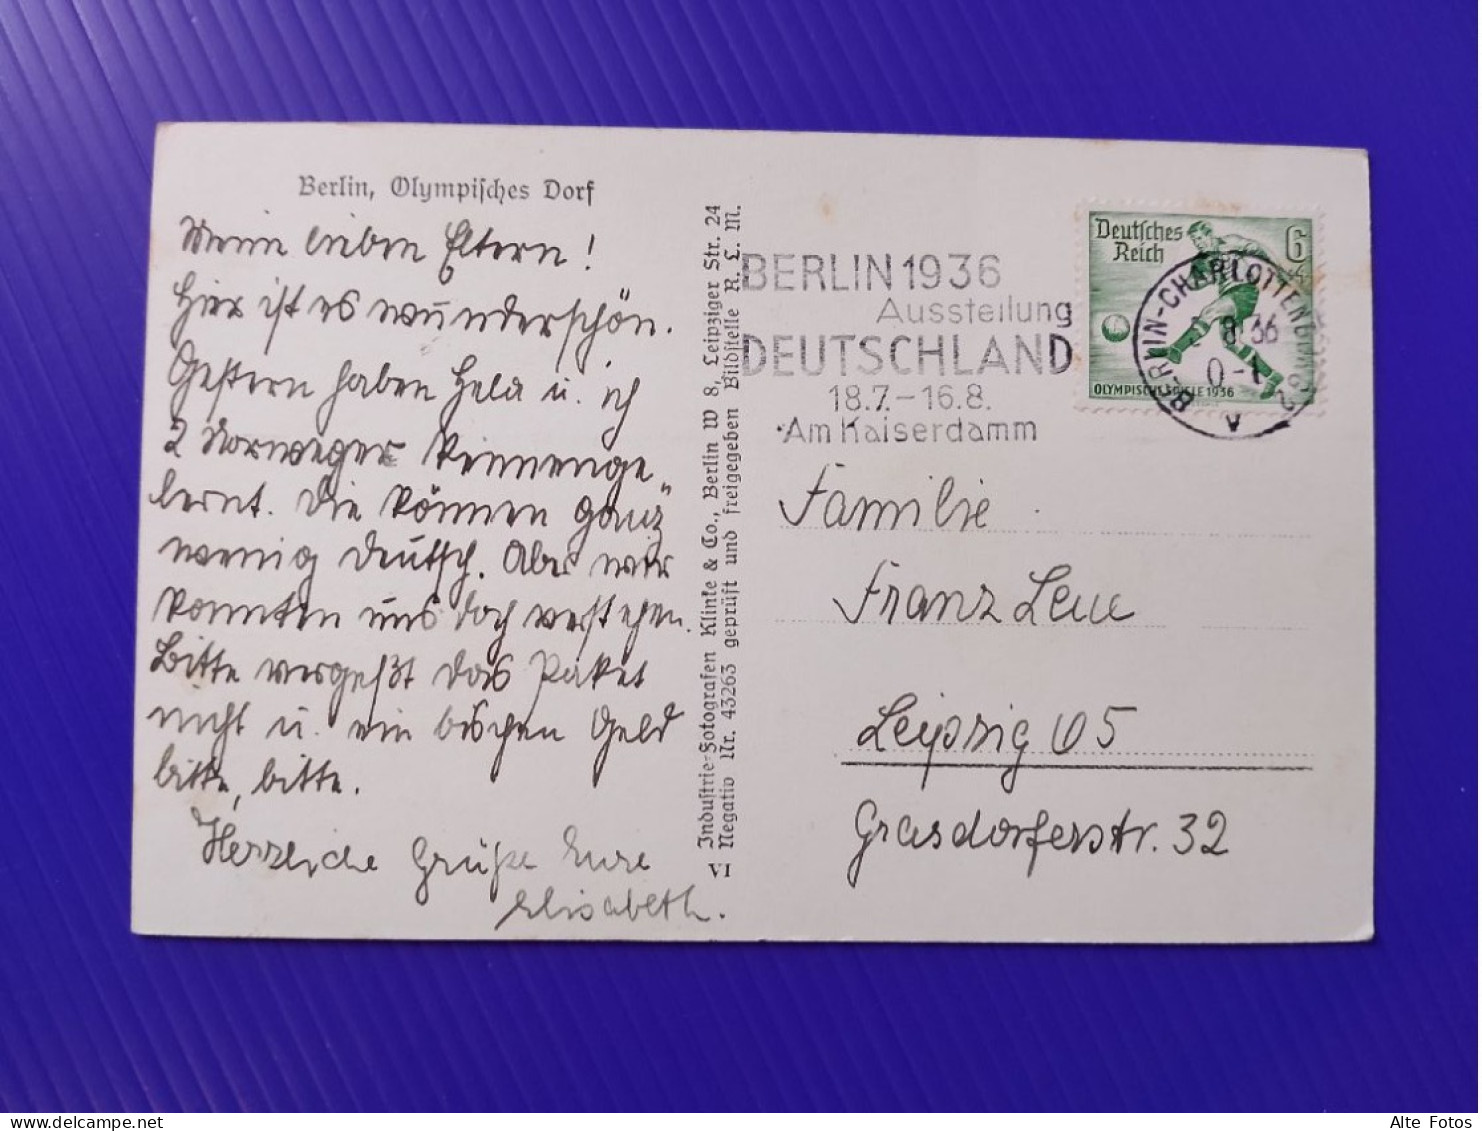 Berlin, Olympisches Dorf
Meine lieben Eltern!
Hier ist es wunderschön.
Gestern haben Hela u. ich
2 Norweger kennenge„
lernt. Die können ganz
wenig deutsch. Aber wir
konnten uns doch verstehen.
Bitte vergeßt das Paket
nicht u. ein bischen Geld
bitte, bitte.
Herzliche Grüße Eure
Elisabeth.
VI
Industrie-Fotografen Klinke & Co., Berlin W 8, Leipziger Str. 24
Negativ Nr. 43263 geprüft und freigegeben Bildstelle R. L. M.
BERLIN 1936
Ausstellung
DEUTSCHLAND
18.7.-16.8.
Am Kaiserdamm
Deutsches
Reich
6
+4
OLYMPISCHE SPIELE 1936
BERLIN-CHARLOTTENBURG 2
8.36
0-1
A
Familie
Franz Leue
Leipzig O5
Grasdorferstr. 32
Alte Fotos